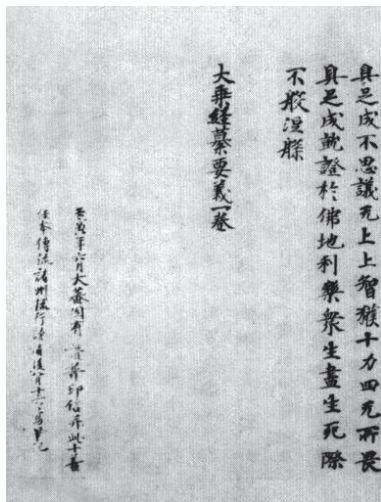 具足成不思議无上上智獲十力四无所畏
具足成就證於佛地利樂衆生盡生死際
不般涅槃
大乘經纂要義一卷
壬寅年六月大蕃國有 贊普印信并此十善
經本傳流諸州流行讀誦後八月十六日寫畢記